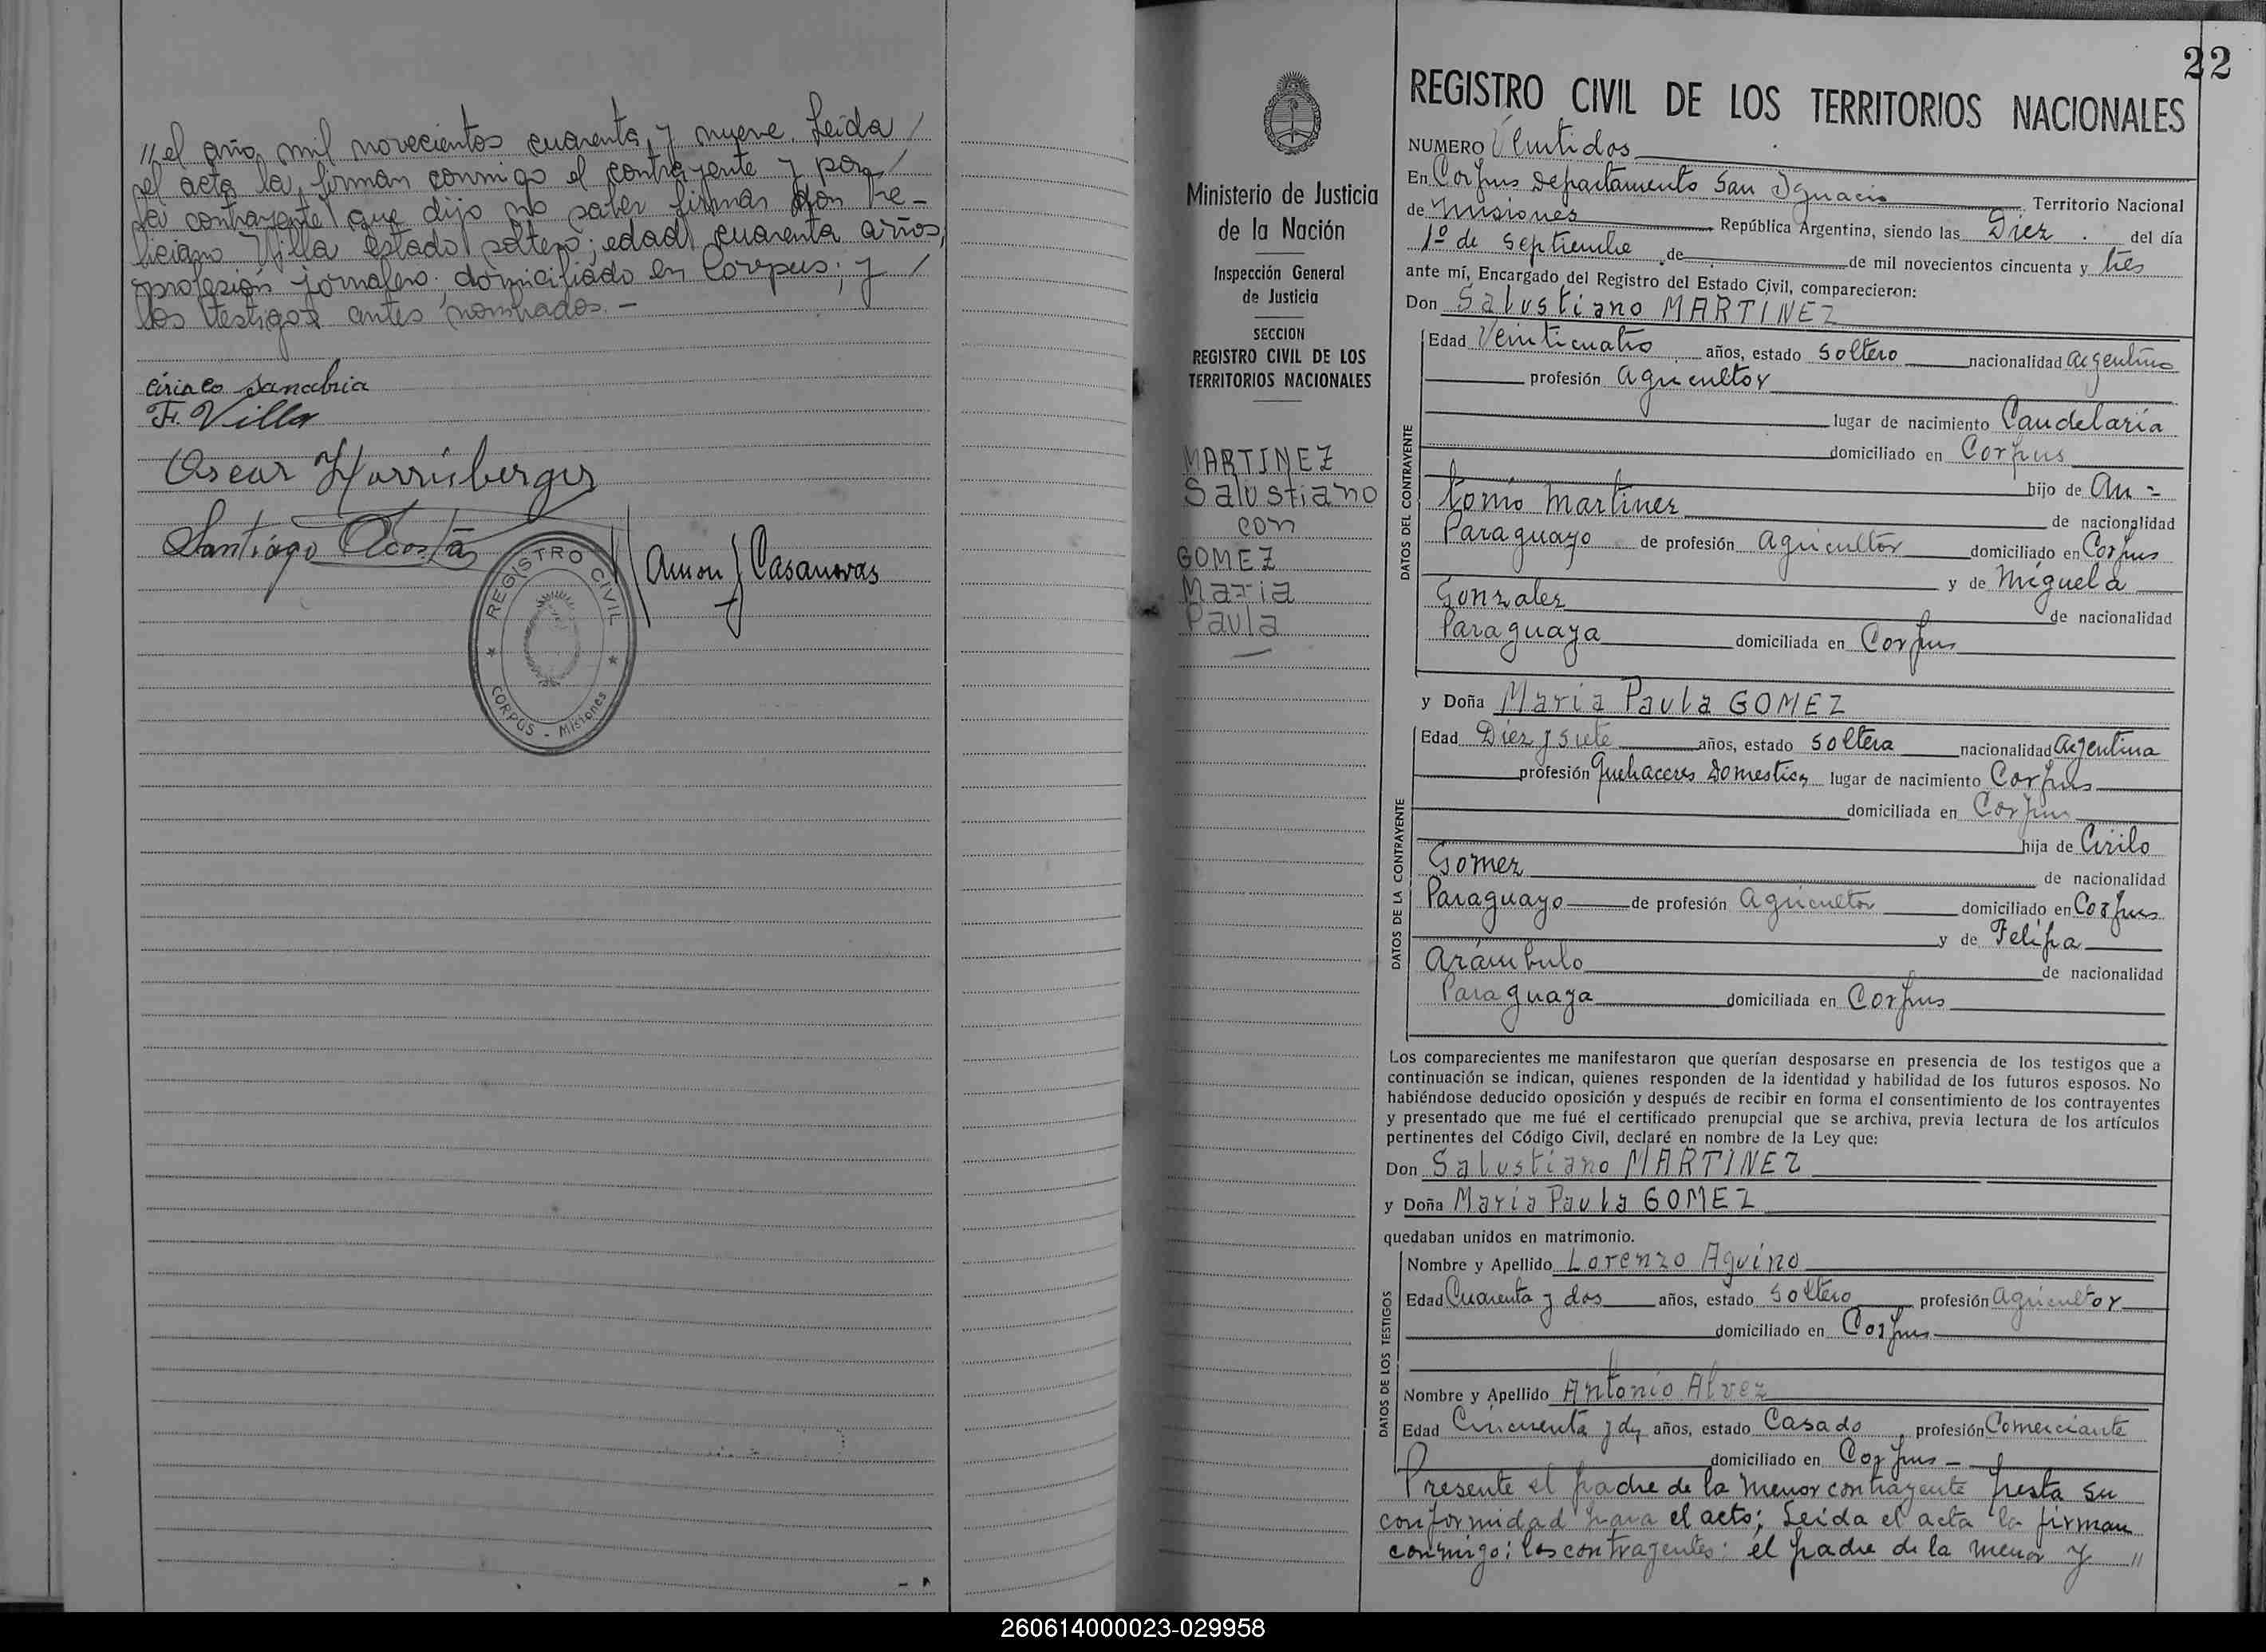 // el año mil novecientos cuarenta y nueve. Leida /
el acta la firman conmigo el contrayente y por /
la contrayente que dijo no saber firmar don Fe-
liciano Villa estado soltero; edad cuarenta años,
profesión jornalero; domiciliado en Corpus; y /
los testigos antes nombrados. -
Ciriaco Sanabria
F. Villa
Oscar
Santiago Acosta
Casanovas
REGISTRO CIVIL
CORPUS - Misiones
Ministerio de Justicia
de la Nación
Inspección General
de Justicia
SECCION
REGISTRO CIVIL DE LOS
TERRITORIOS NACIONALES
MARTINEZ
Salustiano
con
GOMEZ
Maria
Paula
22
REGISTRO CIVIL DE LOS TERRITORIOS NACIONALES
NUMERO Veintidos
En Corpus Departamento San Ignacio Territorio Nacional
de Misiones República Argentina, siendo las Diez del día
1º de Septiembre de de mil novecientos cincuenta y tres
ante mí, Encargado del Registro del Estado Civil, comparecieron:
Don Salustiano MARTINEZ
DATOS DEL CONTRAYENTE
Edad Veinticuatro años, estado Soltero nacionalidad Argentino
profesión Agricultor
lugar de nacimiento Candelaria
domiciliado en Corpus
hijo de An-
tonio Martinez de nacionalidad
Paraguayo de profesión Agricultor domiciliado en Corpus
y de Miguela
Gonzalez de nacionalidad
Paraguaya domiciliada en Corpus
y Doña Maria Paula GOMEZ
DATOS DE LA CONTRAYENTE
Edad Diez y siete años, estado Soltera nacionalidad Argentina
profesión Quehaceres Domesticos lugar de nacimiento Corpus
domiciliada en Corpus
hija de Cirilo
Gomez de nacionalidad
Paraguayo de profesión Agricultor domiciliado en Corpus
y de Felipa
Arámbulo de nacionalidad
Paraguaya domiciliada en Corpus
Los comparecientes me manifestaron que querían desposarse en presencia de los testigos que a
continuación se indican, quienes responden de la identidad y habilidad de los futuros esposos. No
habiéndose deducido oposición y después de recibir en forma el consentimiento de los contrayentes
y presentado que me fué el certificado prenupcial que se archiva, previa lectura de los artículos
pertinentes del Código Civil, declaré en nombre de la Ley que:
Don Salustiano MARTINEZ
y Doña Maria Paula GOMEZ
quedaban unidos en matrimonio.
DATOS DE LOS TESTIGOS
Nombre y Apellido Lorenzo Aquino
Edad Cuarenta y dos años, estado Soltero profesión Agricultor
domiciliado en Corpus
Nombre y Apellido Antonio Alvez
Edad Cincuenta y dos años, estado Casado profesión Comerciante
domiciliado en Corpus -
Presente el padre de la menor contrayente presta su
conformidad para el acto; Leida el acta la firman
conmigo; los contrayentes; el padre de la menor y //
260614000023-029958